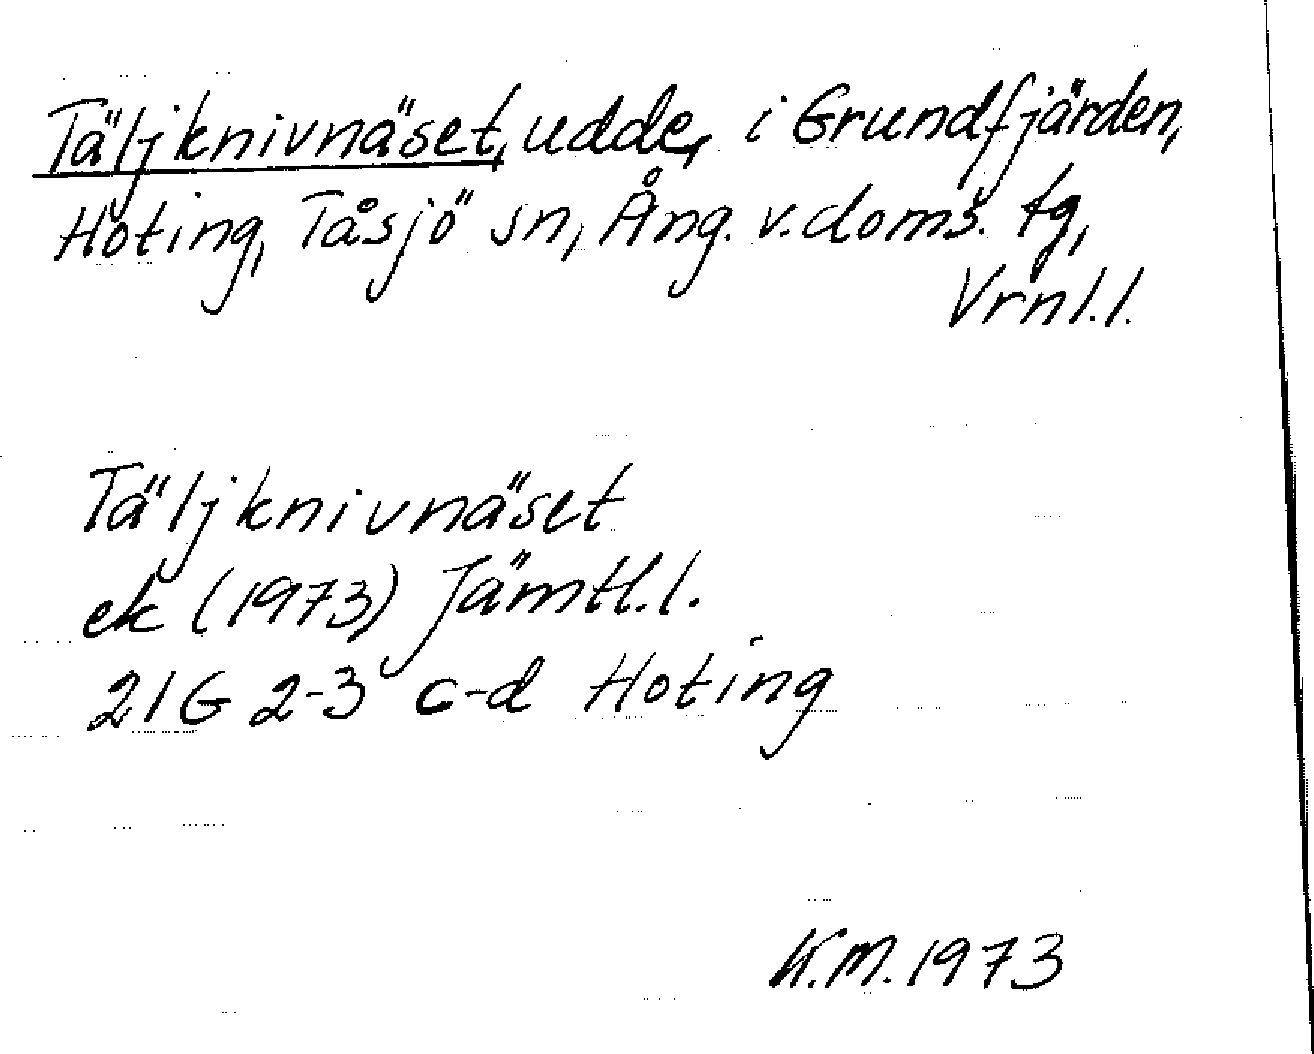 Täljknivnäset, udde, i Grundfjärden,
Hoting, Tåsjö sn, Ång. v. doms. tg,
Vrnl.l.
Täljknivnäset
ek (1973) Jämtl.l.
21G 2-3 c-d Hoting
K.M. 1973